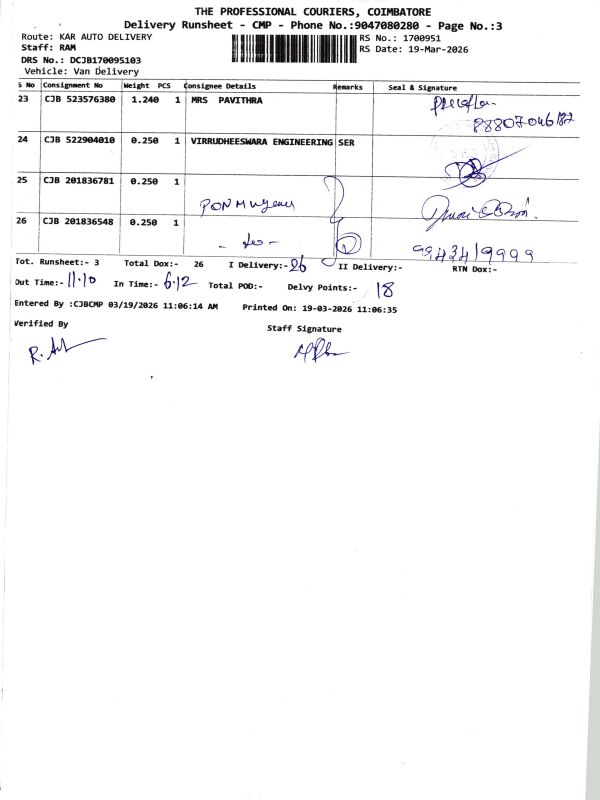 THE PROFESSIONAL COURIERS, COIMBATORE
Delivery Runsheet - CMP - Phone No.:9047080280 - Page No.:3
Route: KAR AUTO DELIVERY
RS No.: 1700951
Staff: RAM
RS Date: 19-Mar-2026
DRS No.: DCJB170095103
Vehicle: Van Delivery
S No Consignment No Weight PCS Consignee Details Remarks Seal & Signature
23 CJB 523576380 1.240 1 MRS PAVITHRA
88807046187
24 CJB 522904010 0.250 1 VIRRUDHEESWARA ENGINEERING SER
25 CJB 201836781 0.250 1
26 CJB 201836548 0.250 1
- do -
Tot. Runsheet:- 3 Total Dox:- 26 I Delivery:- 26 II Delivery:- RTN Dox:-
Out Time:- 11.10 In Time:- 6.12 Total POD:- Delvy Points:- 18
Entered By :CJBCMP 03/19/2026 11:06:14 AM Printed On: 19-03-2026 11:06:35
Verified By
Staff Signature